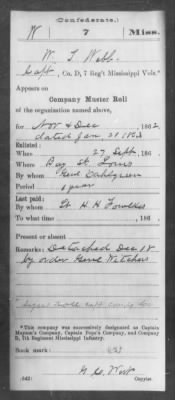 (Confederate.)
W 7 Miss.
W. T. Webb
Capt, Co. D, 7 Reg't Mississippi Vols.*
Appears on
Company Muster Roll
of the organization named above,
for Nov & Dec, 1862.
dated Jan 21 1863
Enlisted:
When 27 Sept, 186 .
Where Bay St. Louis
By whom Genl Dahlgreen
Period 1 year
Last paid:
By whom H. H.
To what time , 186 .
Present or absent
Remarks: Detached Dec 18
by order Genl Withers
*This company was successively designated as Captain
Company, Captain Pope's Company, and Company
D, 7th Regiment Mississippi Infantry.
Book mark:
(642)
Copyist.